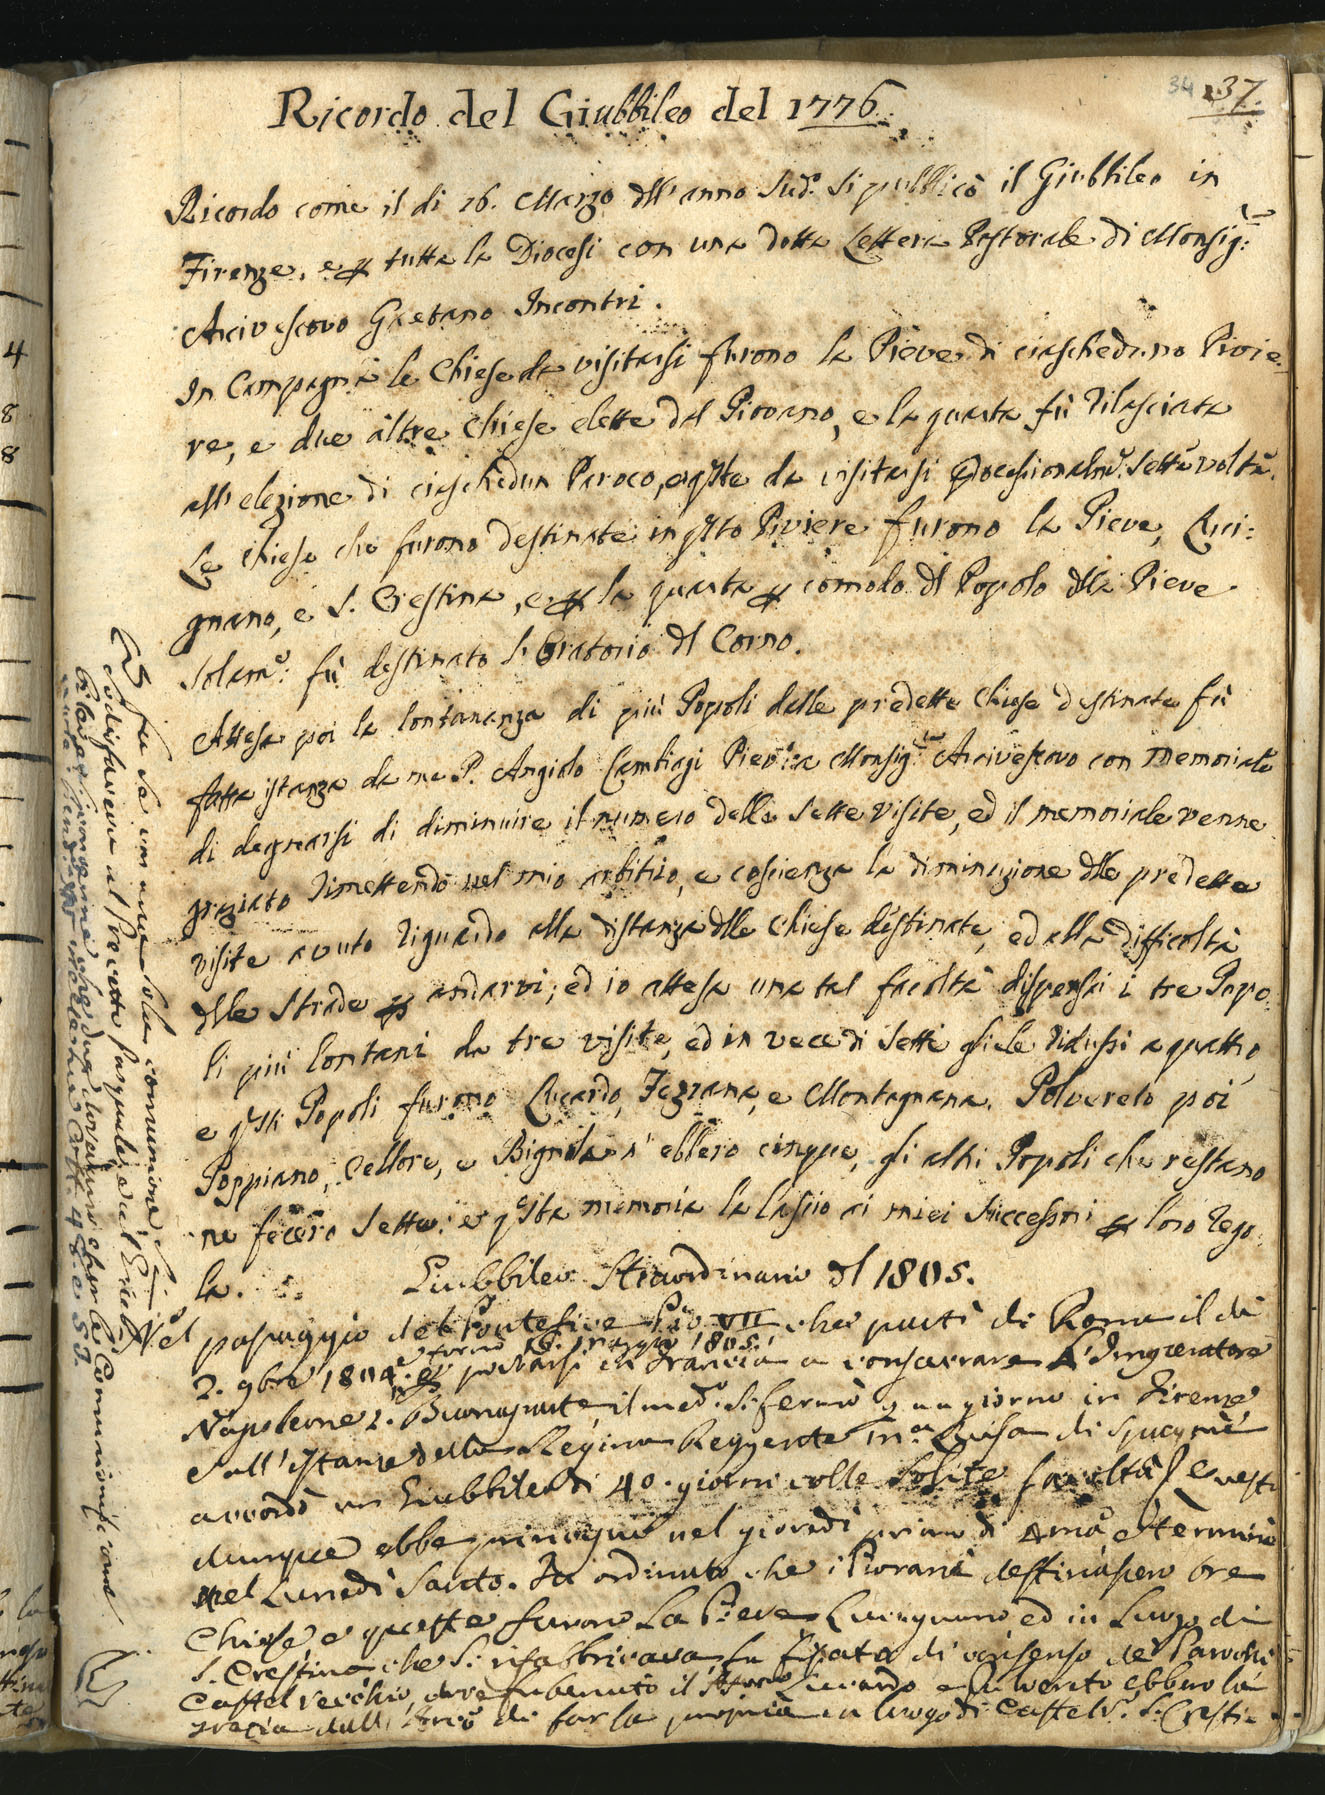 34 237.
Ricordo del Giubbileo del 1776.
Ricordo come il di 26. Marzo dll' anno Sud.º si pubblicò il Giubbileo in
Firenze, e p tutta la Diocesi con una dotta Lettera Pastorale di Monsig.re
Arcivescovo Gaetano Incontri.
In Campagna le Chiese da visitarsi furono la Pieve di ciascheduno Pivie-
re, e due altre Chiese elette dal Piovano, e la quarta fù rilasciata
all' elezione di ciaschedun Paroco, e qste da visitarsi processionalm.e sette volte.
Le Chiese che furono destinate in qsto Piviere furono la Pieve, Luci=
gnano, e S. Crestina, e p la quarta p comodo dl Popolo dlla Pieve
solam.e fù destinato l'Oratorio dl Corno.
Attesa poi la lontananza di più Popoli dalle predette Chiese destinate fù
fatta istanza da me P. Angiolo Cambiagi Piev.º a Monsig.re Arcivescovo con memoriale
di degnarsi di diminuire il numero delle sette visite, ed il memoriale venne
graziato rimettendo nel mio arbitrio, e coscienza la diminuzione dlle predette
visite avuto riguardo alla distanza dlle Chiese destinate, ed alla difficoltà
dlle strade p andarvi; ed io attesa una tal facoltà dispensai i tre Popo-
li più lontani da tre visite, ed in vece di sette gliele ridussi a quattro,
e qsti Popoli furono Lucardo, Fezzana, e Montagnana. Polvereto poi
Poppiano, Cellore, e Bignola n' ebbero cinque, gli altri Popoli che restano
ne fecero sette: e qsta memoria la lascio ai miei successori p loro rego-
la.
Giubbileo Straordinario dl 1805.
Nel passaggio del Pontefice Pio VII che partì di Roma il di
2. 9bre 1804. e tornò maggio 1805. p portarsi in Francia a consacrare l'Imperatore
Napoleone I. Buonaparte, il med.º si fermò q un giorno in Firenze
e all' istanze della Regina Reggente M.a Luisa di Spagna
accordò un Giubbileo di 40. giorni colle solite facoltà, e questo
dunque ebbe principio nel giovedì primo di e terminò
nel Lunedì Santo. Fu ordinato che i Piovani destinassero tre
Chiese, e queste furono La Pieve Lucignano, ed in luogo di
S. Crestina che si rifabbricava, fu di consenso de Parochi
Castelvecchio, il Lucardo e Polvereto ebbero la
grazia dall' di far la propria in luogo di Castelv. S. Cresti-
E fu se con una sola comunione si
sodisfaceva al Precetto Pasquale, e al Giub.